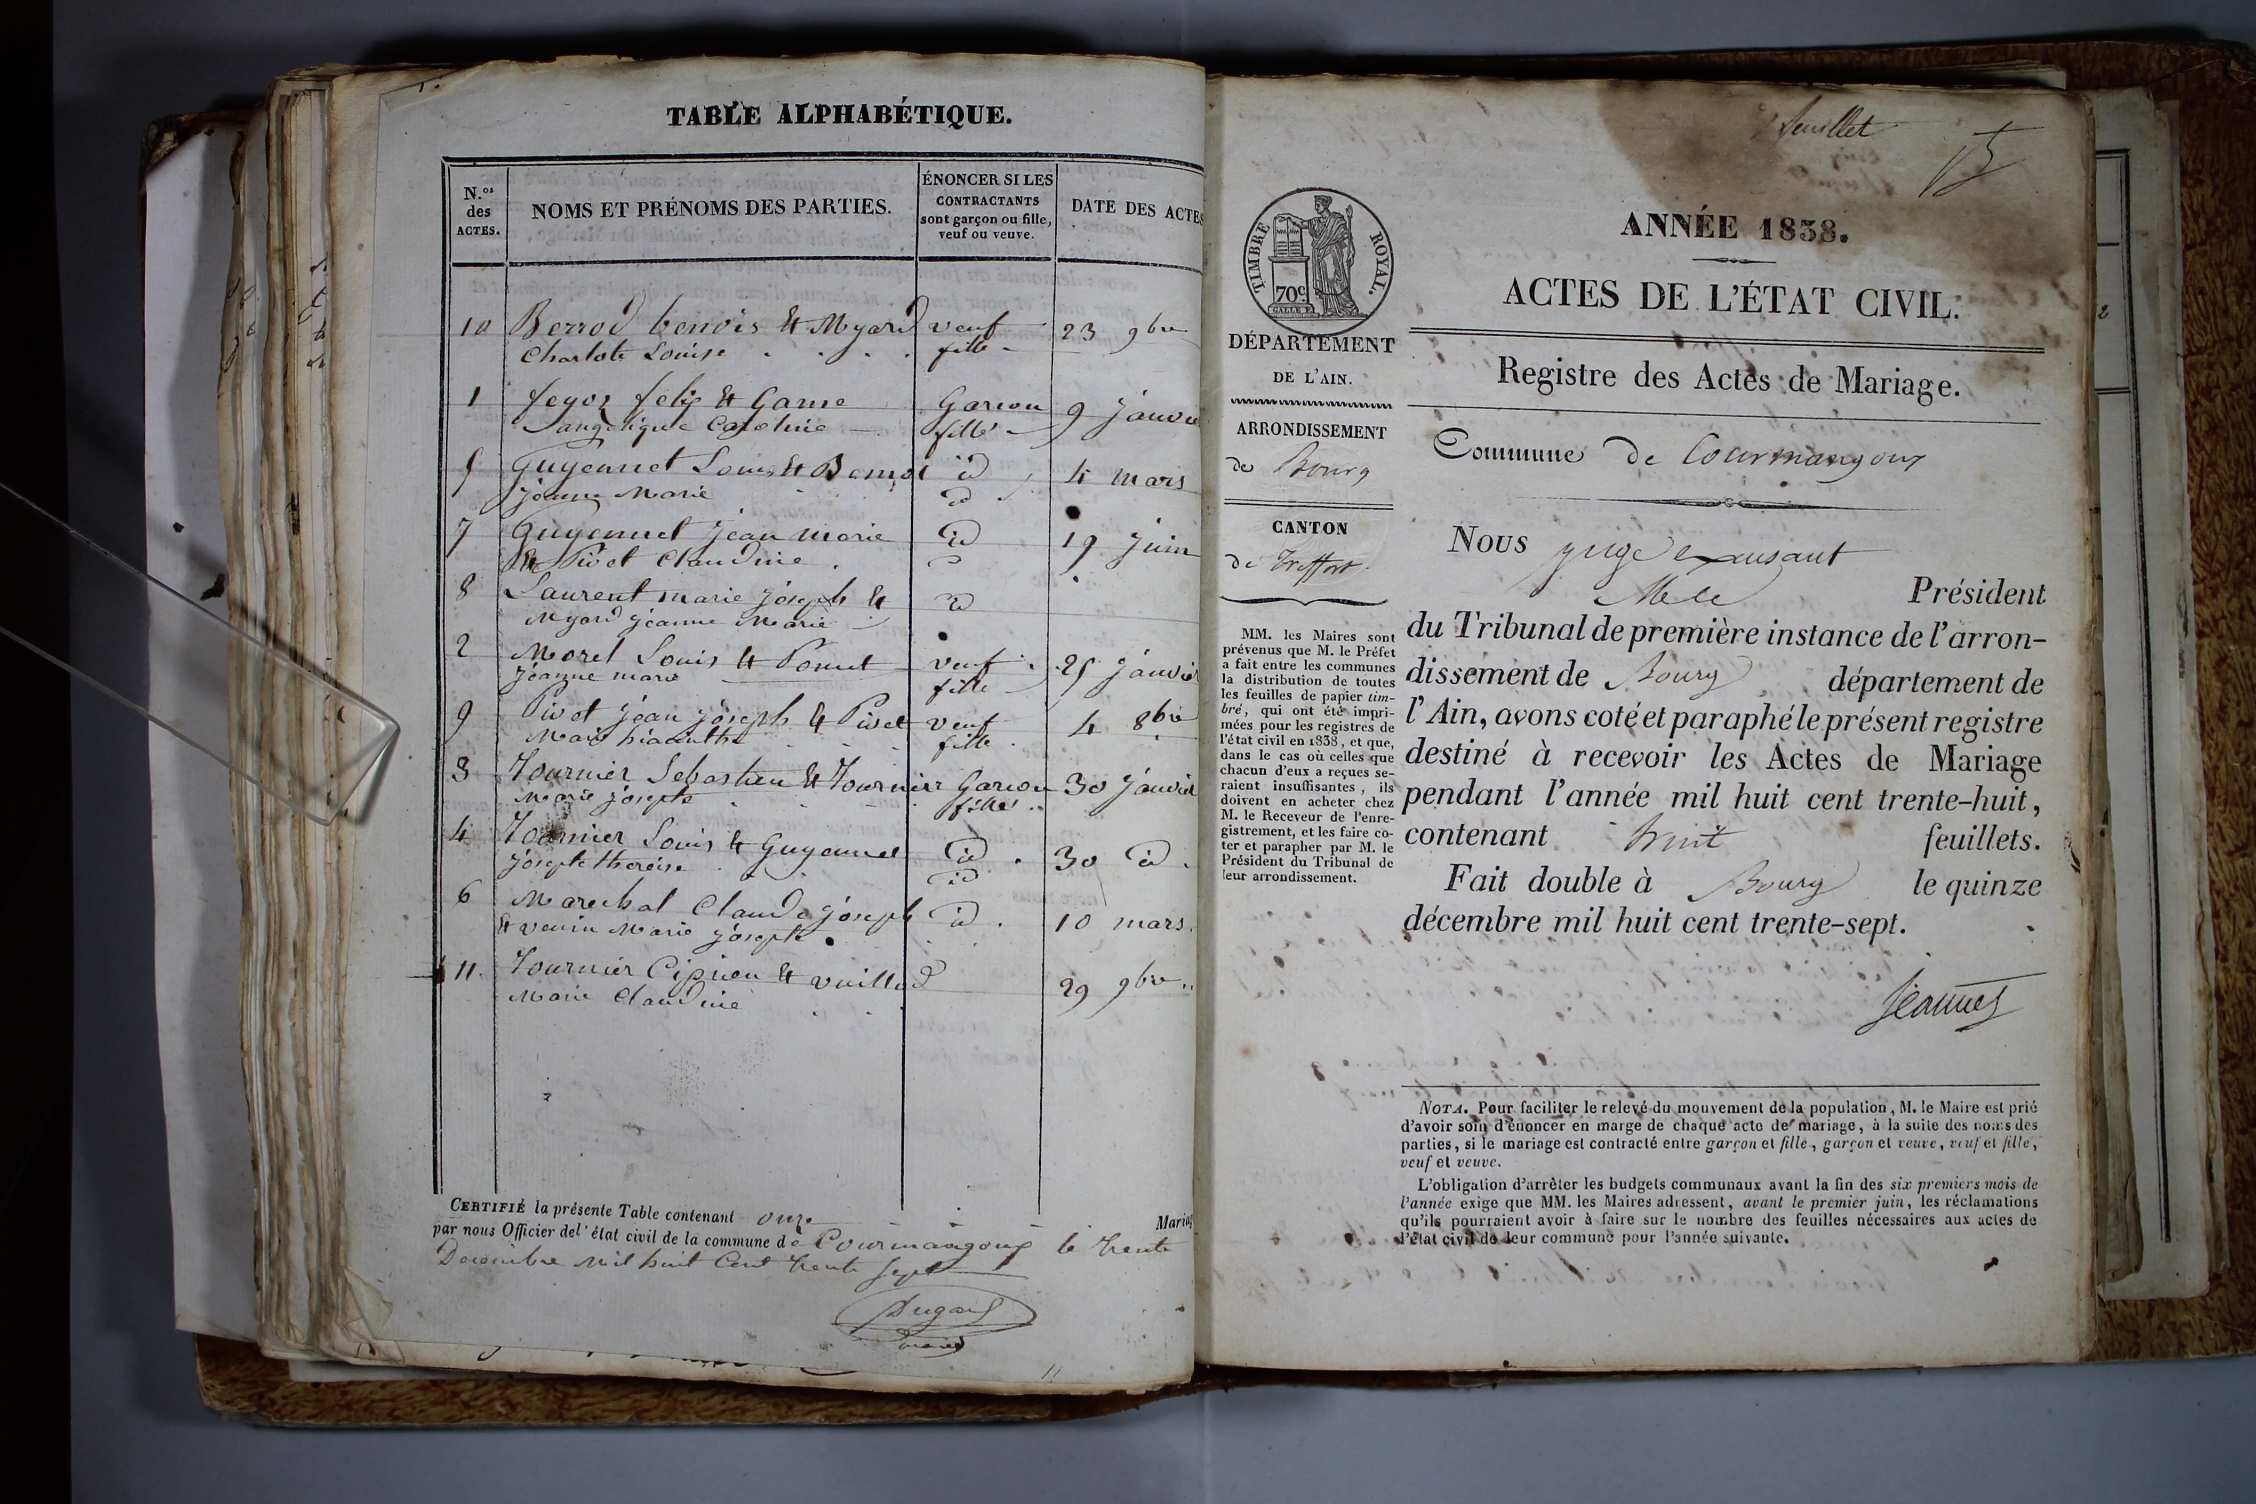 TABLE ALPHABÉTIQUE.
N.os des ACTES.
NOMS ET PRÉNOMS DES PARTIES.
ÉNONCER SI LES CONTRACTANTS sont garçon ou fille, veuf ou veuve.
DATE DES ACTES
10 Berrod benois & Myard veuf 23 9bre
Charlote Louise fille
1 feyoz felix & Game Garcon 9 Janvie
angelique Caroline fille
5 Guyennet Louis & id 4 mars
Jeanne Marie id
7 Guyennet Jean Marie id 19 Juin
& Pivot Claudine
8 Laurent marie Joseph & id
Myard Jeanne Marie
2 Morel Louis & veuf 25 Janvie
Jeanne marie fille
9 Pivot Jean Joseph & Pivet veuf 4 8bre
Marie hiacinthe fille
3 Tournier Sebastien & Tournier Garcon 30 Janvier
Marie Josephe fille
4 Tournier Louis & Guyennet id 30 id
Josephe therèse id
6 Marechal Claude Joseph id 10 mars
& venin Marie Josephe
11 Tournier Ciprien & vuillod 29 9bre
Marie Claudine
CERTIFIÉ la présente Table contenant onze Mariag
par nous Officier del'état civil de la commune de Courmangoux le trente
Decembre Mil huit Cent trente sept
Dugard
11
feuillet
ANNÉE 1838.
ACTES DE L'ÉTAT CIVIL.
Registre des Actes de Mariage.
TIMBRE ROYAL.
70c.
DÉPARTEMENT
DE L'AIN.
ARRONDISSEMENT
de Bourg
CANTON
de Treffort
MM. les Maires sont
prévenus que M. le Préfet
a fait entre les communes
la distribution de toutes
les feuilles de papier tim-
bré, qui ont été impri-
mées pour les registres de
l'état civil en 1838, et que,
dans le cas où celles que
chacun d'eux a reçues se-
raient insuffisantes, ils
doivent en acheter chez
M. le Receveur de l'enre-
gistrement, et les faire co-
ter et parapher par M. le
Président du Tribunal de
leur arrondissement.
Commune de Courmangoux
Nous juge
Président
du Tribunal de première instance de l'arron-
dissement de Bourg département de
l'Ain, avons coté et paraphé le présent registre
destiné à recevoir les Actes de Mariage
pendant l'année mil huit cent trente-huit,
contenant huit feuillets.
Fait double à Bourg le quinze
décembre mil huit cent trente-sept.
Jeannet
NOTA. Pour faciliter le relevé du mouvement de la population, M. le Maire est prié
d'avoir soin d'énoncer en marge de chaque acte de mariage, à la suite des noms des
parties, si le mariage est contracté entre garçon et fille, garçon et veuve, veuf et fille,
veuf et veuve.
L'obligation d'arrêter les budgets communaux avant la fin des six premiers mois de
l'année exige que MM. les Maires adressent, avant le premier juin, les réclamations
qu'ils pourraient avoir à faire sur le nombre des feuilles nécessaires aux actes de
l'état civil de leur commune pour l'année suivante.